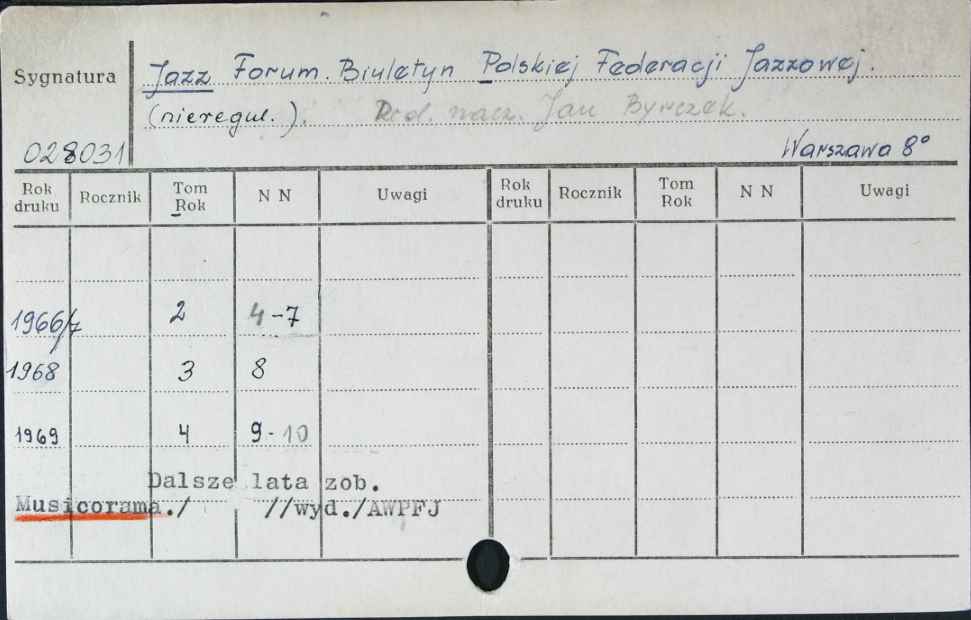 Sygnatura
Jazz Forum. Biuletyn Polskiej Federacji Jazzowej.
(nieregul.). Red. nacz. Jan Byrczek.
028031 Warszawa 8°
Rok druku Rocznik Tom Rok N N Uwagi Rok druku Rocznik Tom Rok N N Uwagi
1966/7 2 4-7
1968 3 8
1969 4 9-10
Dalsze lata zob.
Musicorama./ //wyd./AWPFJ